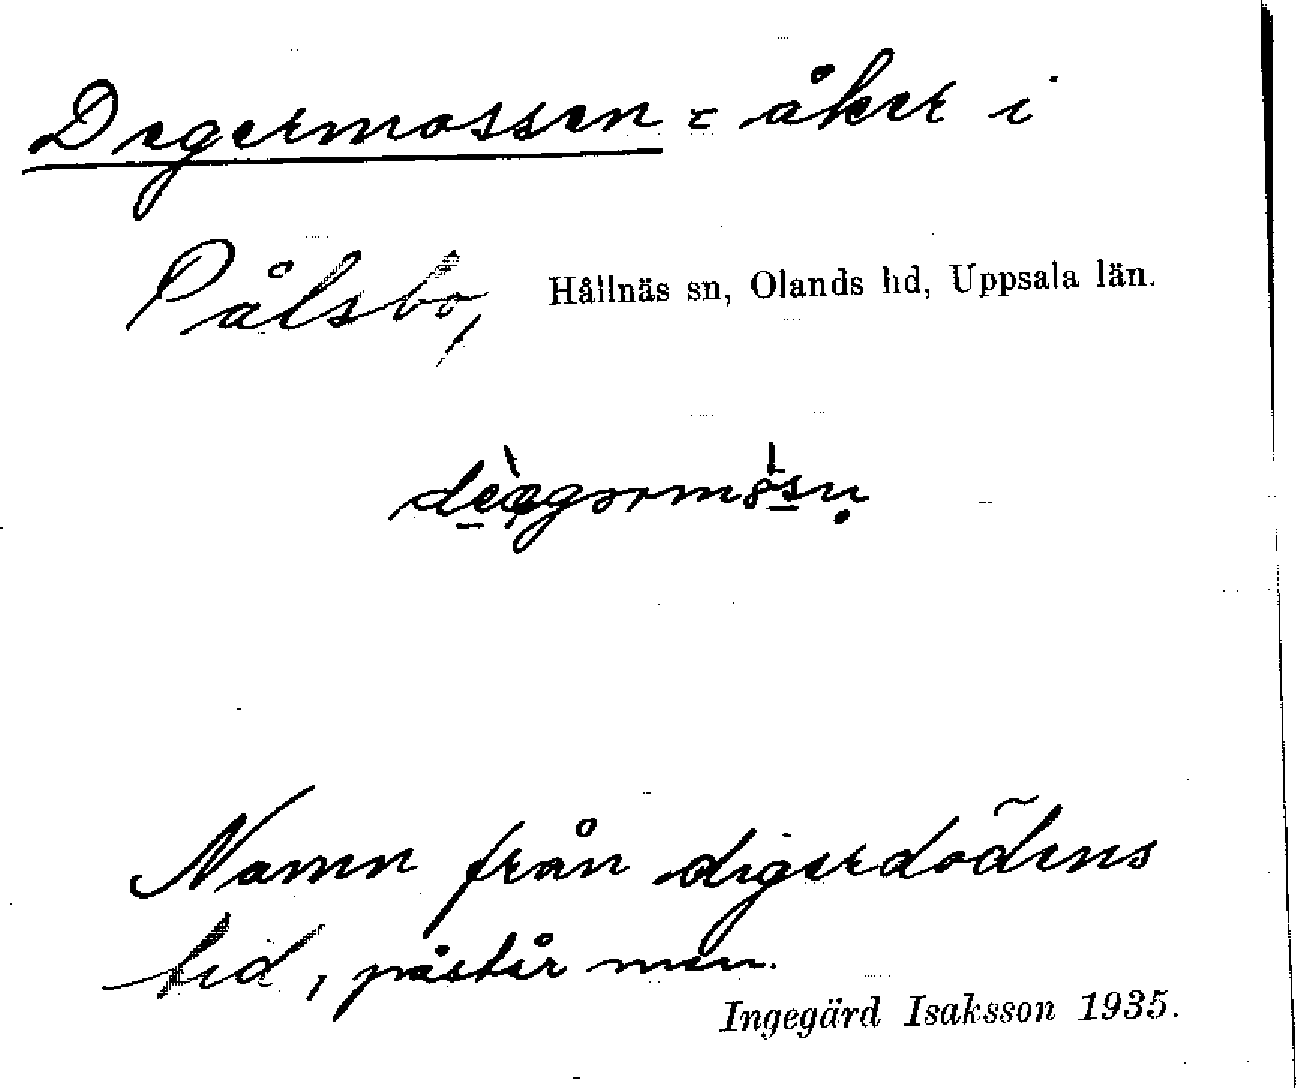 Degermossen = åker i
Pålsbo, Hållnäs sn, Olands hd, Uppsala län.
Namn från digerdödens
tid, påstår man.
Ingegärd Isaksson 1935.